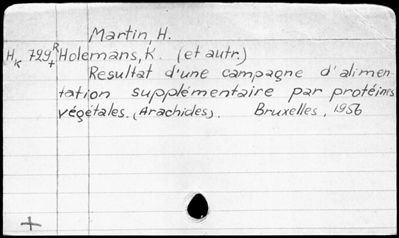 Martin, H.
Hk 729R+ Holemans, K. (et autr.)
Resultat d'une campagne d'alimen-
tation supplémentaire par protéines
végétales. (Arachides). Bruxelles, 1956
+